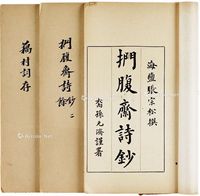 海鹽張宗松撰
捫腹齋詩鈔
裔孫元濟謹署
捫腹齋詩鈔 二
詩餘
藕村詞存